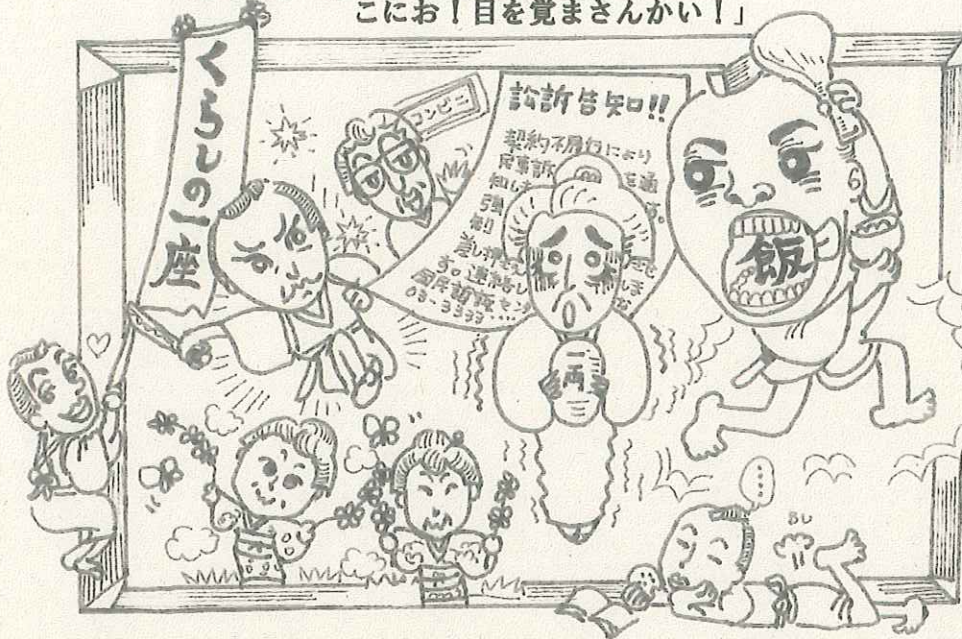 こにお！目を覚まさんかい！」
くらしの一座
コンビニ
訟訴告知!!
契約不履行により
民事訴 を通
知しま す。
強
知
差し押さえ
す。連絡し
国民訴訟センタ
03-3333‥‥
飯
一両
‥‥
ぷし